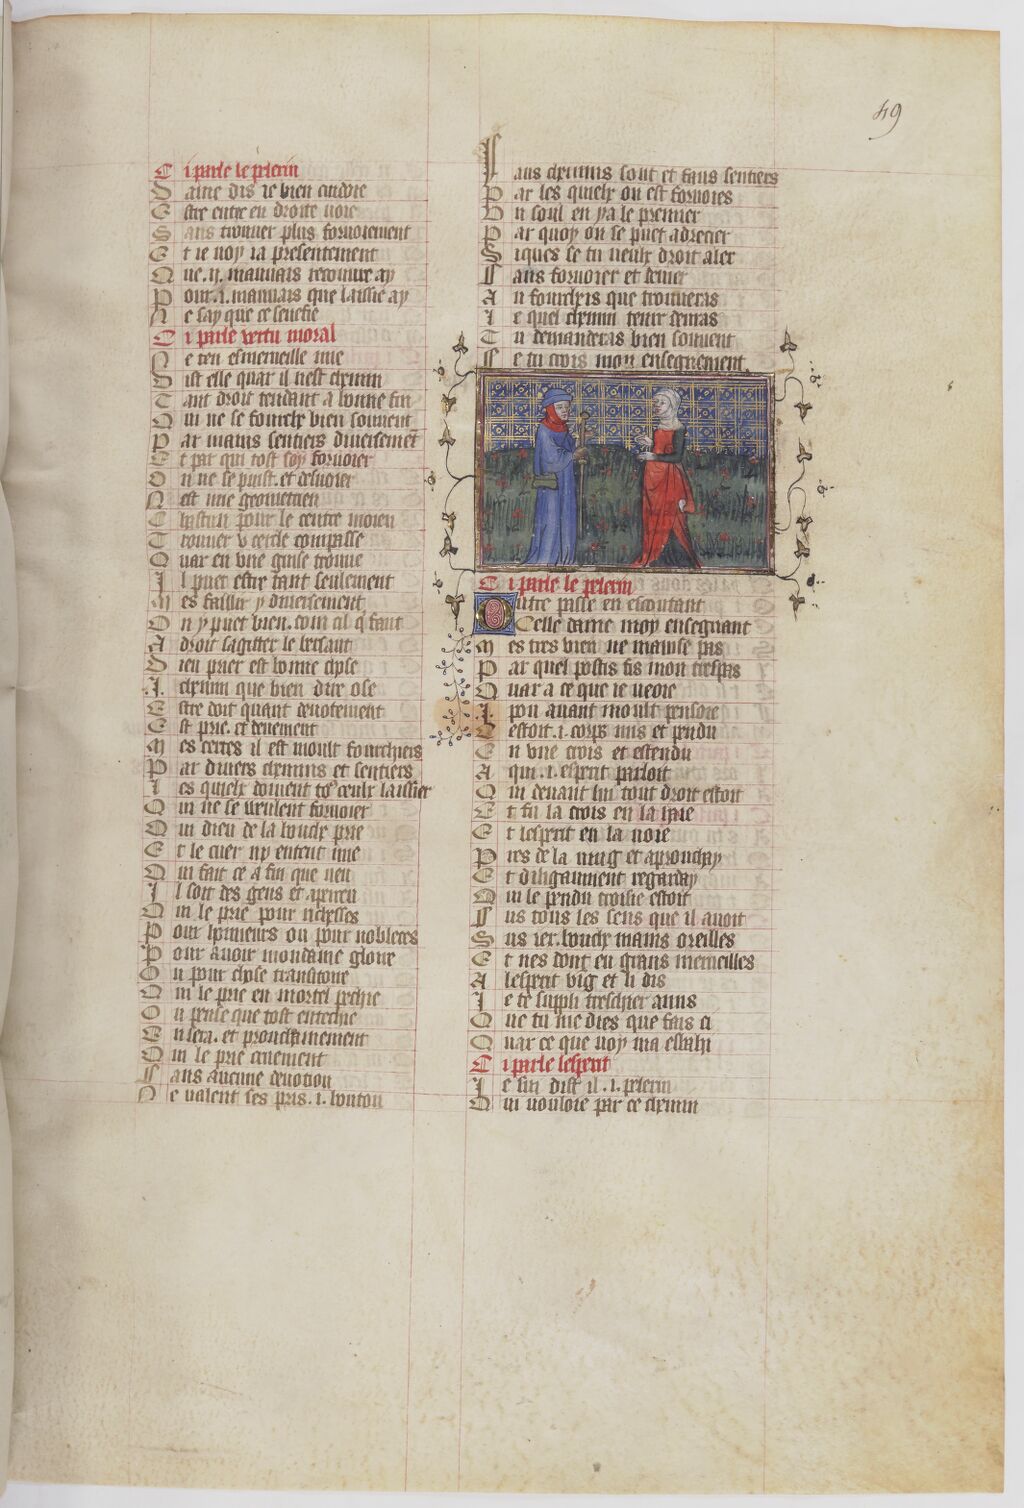 49
Ci parle le pelerin
Dame dis ie bien cuidoie
Estre entre en droite voie
Sans trouuer plus foruoiement
Et ie voy ia presentement
Que .ii. mauuais recouure ay
Pour .i. mauuais que laissie ay
Ne say que ce senefie
Ci parle vertu moral
Ne ten esmerueille mie
Dist elle quar il nest chemin
Tant droit tendant a bonne fin
Qui ne se fourche bien souuent
Par mains sentiers diuersement
Et par qui tost soy foruoier
On ne se puist. et desuoier
Nest mie geometrien
Chascun pour le centre moien
Trouuer v cercle compasse
Quar en vne guise trouue
Il puet estre tant seulement
Mes faillir y diuersement
On y puet bien. com cil q faut
A droit sagitter le bersaut
Bien prier est bonne chose
.I. chemin que bien dire ose
Estre doit quant deuotement
Est prie. et deuement
Mes certes il est moult fourchiers
Par diuers chemins et sentiers
Les quielx doiuent tos ceulx laissier
Qui ne se veulent foruoier
Qui dieu de la bouche prie
Et le cuer ny entent mie
Qui fait ce a fin que veu
Il soit des gens et aperceu
Qui le prie pour richesses
Pour honneurs ou pour nobleces
Pour auoir mondaine gloire
Ou pour chose transitoire
Qui le prie en mortel pechie
Ou pense que tost entechie
En sera. et prouchainement
Qui le prie
Sans aucune deuotion
Ne valent ses pris .i. bouton
Faus chemins sont et faus sentiers
Par les quielx on est foruoies
Vn soul en y a le premier
Par quoy on se puet adrecier
Si ques se tu veulx droit aler
Sans foruoier et
An fourchis que trouueras
Le quel chemin tenir deuras
Tu demanderas bien souuent
Se tu crois mon enseignement.
Ci parle le pelerin
Outre passe en escoutant
Celle dame moy enseignant
Mes tres bien ne mauise pas
Par quel postis fis mon trespas
Quar a ce que ie veoie
.I. pou auant moult pensoie
Cestoit .i. corps mis et pendu
En vne crois et estendu
A qui .i. esperit parloit
Qui deuant lui tout droit estoit
Et fu la crois en la haie
Et lesperit en la voie
Pres de la ving et aprouchay
Et diligaument regarday
Qui le pendu croisie estoit
Sus tous les sens que il auoit
Sus iex. bouche mains oreilles
Et nes dont eu grans merueilles
A lesperit ving et li dis
Ie te suppli treschier amis
Que tu me dies que fais ci
Quar ce que voy ma esbahi
Ci parle lesperit
Ie sui dist il .i. pelerin
Qui vouloie par ce chemin